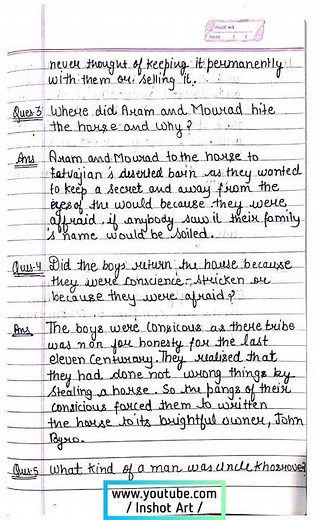 PAGE NO.
DATE
never thought of keeping it permanently
with them or selling it.
Ques-3 Where did Aram and Mourad hite
the horse and why?
Ans Aram and Mourad to the horse to
Fetvajian's diserted barn as they wanted
to keep a secret and away from the
eyes of the would because they were
affraid if anybody saw it their family
's name would be soiled.
Ques-4 Did the boys return the house because
they were conscience-stricken or
because they were afraid?
Ans, The boys were Consicous as there tribe
was non for honesty for the last
eleven Centurary. They realised that
they had done not wrong things by
stealing a horse. So the pangs of their
conscious forced them to written
the horse to its brightful owner, John
Byro.
Ques-5 What kind of a man was uncle Khosrove?
www.youtube.com
/ Inshot Art /